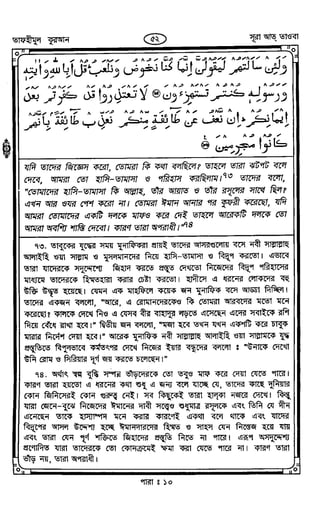 তাফহীমুল কুরআন
৫২
সূরা আত্ তাওবা
وَلَئِنْ سَاَلْتَهُمْ لَيَقُوْلُنَّ اِنَّمَا كُنَّا نَخُوْضُ وَنَلْعَبُ ؕ قُلْ اَبِاللّٰهِ وَاٰيٰتِهٖ
وَرَسُوْلِهٖ كُنْتُمْ تَسْتَهْزِءُوْنَ ۞ لَا تَعْتَذِرُوْا قَدْ كَفَرْتُمْ بَعْدَ
اِيْمَانِكُمْ ؕ اِنْ نَّعْفُ عَنْ طَآئِفَةٍ مِّنْكُمْ نُعَذِّبْ طَآئِفَةًۢ بِاَنَّهُمْ
كَانُوْا مُجْرِمِيْنَ ۞
যদি তাদের জিজ্ঞেস করো, তোমরা কি কথা বলছিলে? তাহলে তারা ঝটপট বলে
দেবে, আমরা তো হাসি-তামাসা ও পরিহাস করছিলাম।৭৩ তাদের বলো,
"তোমাদের হাসি-তামাসা কি আল্লাহ, তাঁর আয়াত ও তাঁর রসূলের সাথে ছিল?
এখন আর ওযর পেশ করো না। তোমরা ঈমান আনার পর কুফরী করেছো, যদি
আমরা তোমাদের একটি দলকে মাফও করে দেই তাহলে আরেকটি দলকে তো
আমরা অবশ্যি শাস্তি দেবো। কারণ তারা অপরাধী।"৭৪
৭৩. তাবুকের যুদ্ধের সময় মুনাফিকরা প্রায়ই তাদের আসরগুলোয় বসে নবী সাল্লাল্লাহু
আলাইহি ওয়া সাল্লাম ও মুসলমানদের নিয়ে হাসি-তামাসা ও বিদ্রূপ করতো। এভাবে
তারা যাদেরকে সদুদ্দেশ্যে জিহাদ করতে প্রস্তুত দেখতো নিজেদের বিদ্রূপ পরিহাসের
মাধ্যমে তাদেরকে হিম্মতহারা করার চেষ্টা করতো। হাদীসে এ ধরনের লোকদের বহু
উক্তি উদ্ধৃত হয়েছে। যেমন এক মাহফিলে কয়েক জন মুনাফিক বসে আড্ডা দিচ্ছিল।
তাদের একজন বললো, "আরে, এ রোমানদেরকেও কি তোমরা আরবদের মতো মনে
করেছো? কালকে দেখে নিও এ যেসব বীর বাহাদুর লড়তে এসেছেন এদের সবাইকে রশি
দিয়ে বেঁধে রাখা হবে।" দ্বিতীয় জন বললো, "মজা হবে তখন যখন একশটি করে চাবুক
মারার নির্দেশ দেয়া হবে।" আরেক মুনাফিক নবী সাল্লাল্লাহু আলাইহি ওয়া সাল্লামকে যুদ্ধ
প্রস্তুতিতে বিপুলভাবে কর্মতৎপর দেখে নিজের ইয়ার বন্ধুদের বললো : "উনাকে দেখো
উনি রোম ও সিরিয়ার দূর্গ জয় করতে চলেছেন।"
৭৪. অর্থাৎ স্বল্প বুদ্ধি সম্পন্ন ভাঁড়দেরকে তো তবুও মাফ করে দেয়া যেতে পারে।
কারণ তারা হয়তো এ ধরনের কথা শুধু এ জন্য বলে যাচ্ছে যে, তাদের কাছে দুনিয়ার
কোন জিনিসেরই কোন গুরুত্ব নেই। সব কিছুকেই তারা হাল্কা নজরে দেখে। কিন্তু
যারা জেনে-বুঝে নিজেদের ঈমানের দাবী সত্ত্বেও শুধুমাত্র রসূলকে এবং তিনি যে দীন
এনেছেন তাকে হাস্যাস্পদ মনে করার কারণেই একথা বলে থাকে এবং যাদের
বিদ্রূপের আসল উদ্দেশ্য হচ্ছে ঈমানদারদের হিম্মত ও সাহস যেন নিস্তেজ হয়ে যায়
এবং তারা যেন পূর্ণ শক্তিতে জিহাদের প্রস্তুতি নিতে না পারে। এরূপ অসদুদ্দেশ্যে
প্রণোদিত যারা তাদেরকে তো কোনক্রমেই ক্ষমা করা যেতে পারে না। কারণ তারা
ভাঁড় নয়, তারা অপরাধী।
পারা : ১০